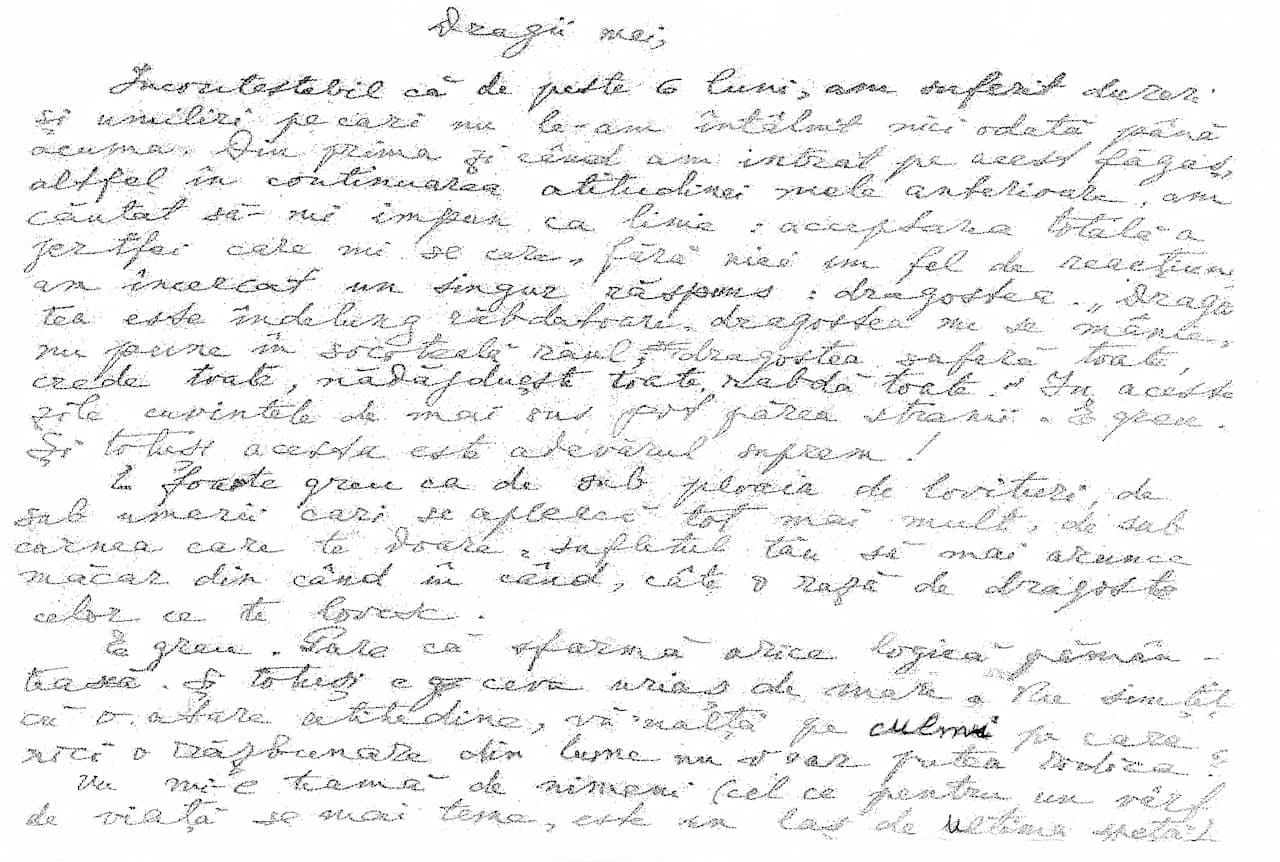 Dragii mei,
Incontestabil că de peste 6 luni, am suferit dureri
și umiliri pe cari nu le-am întâlnit nici odată până
acuma. Din prima zi când am intrat pe acest făgaș,
altfel în continuarea atitudinei mele anterioare, am
căutat să-mi impun ca linie: acceptarea totală a
jertfei care mi se cere, fără nici un fel de reacțiune
am încercat un singur răspuns: dragostea. „Drago
tea este îndelung răbdătoare. dragostea nu se mânie,
nu pune în socoteală răul, dragostea suferă toate,
crede toate, nădăjduește toate, rabdă toate." In aceste
zile cuvintele de mai sus pot părea stranii. E greu.
Și totuși acesta este adevărul suprem!
E foarte greu ca de sub ploaia de lovituri, de
sub umerii cari se apleacă tot mai mult, de sub
carnea care te doare, sufletul tău să mai arunce
măcar din când în când, câte o rază de dragoste
celor ce te lovesc.
E greu. Pare că sfarmă orice logică pămân-
tească. Și totuși e ceva uriaș de mare. Nu simțiți
că o atare atitudine, vă'nalță pe culmi pe care
nici o răzbunare din lume nu o var putea rodica?
Nu mi-e teamă de nimeni (cel ce pentru un vârf
de viață se mai teme, este un laș de ultima speță)